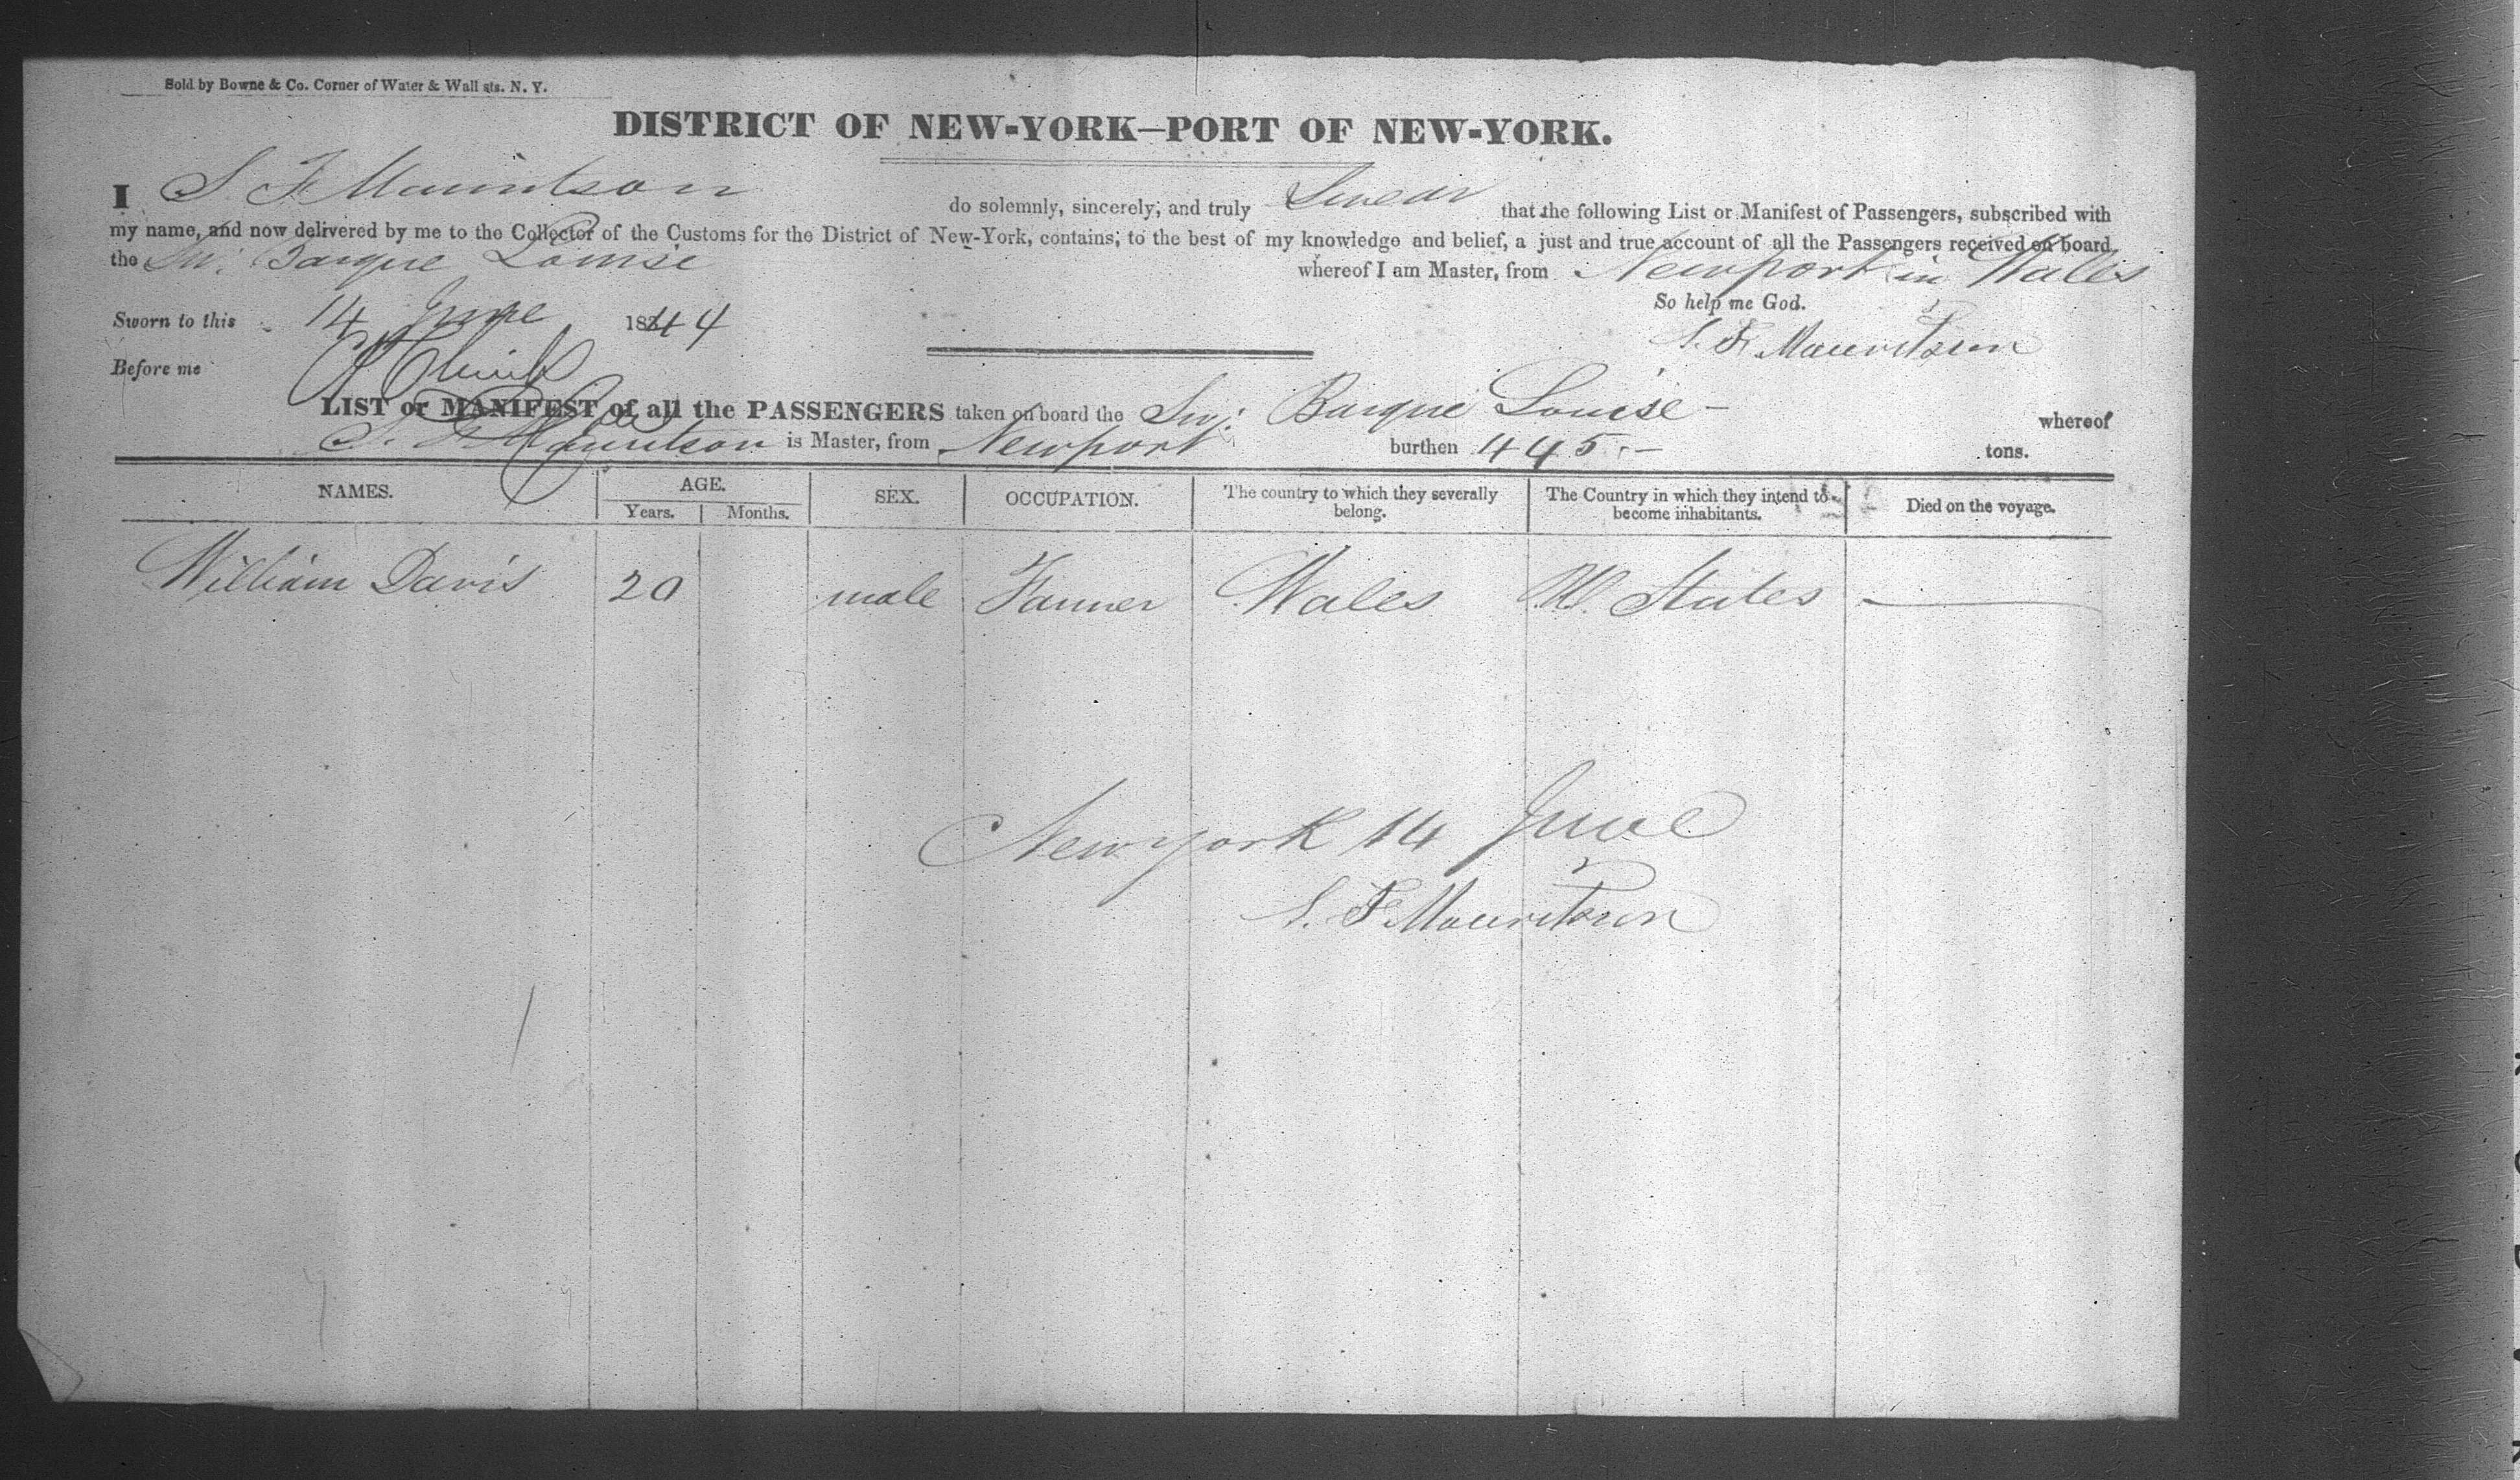 Sold by Bowne & Co. Corner of Water & Wall sts. N. Y.
DISTRICT OF NEW-YORK—PORT OF NEW-YORK.
I S. F. Mauritson do solemnly, sincerely, and truly Swear that the following List or Manifest of Passengers, subscribed with
my name, and now delivered by me to the Collector of the Customs for the District of New-York, contains, to the best of my knowledge and belief, a just and true account of all the Passengers received on board
the Sw: Barque Louise whereof I am Master, from Newport in Wales
So help me God.
Sworn to this 14 June 1844
S. F. Mauritzson
Before me
LIST or MANIFEST of all the PASSENGERS taken on board the Sw: Barque Louise - whereof
S. F. Mauritson is Master, from Newport burthen 445 - tons.
NAMES. AGE. SEX. OCCUPATION. The country to which they severally belong. The Country in which they intend to become inhabitants. Died on the voyage.
Years. Months.
William Davis 20 male Farmer Wales U. States —
New york 14 June
S. F. Mauritzson